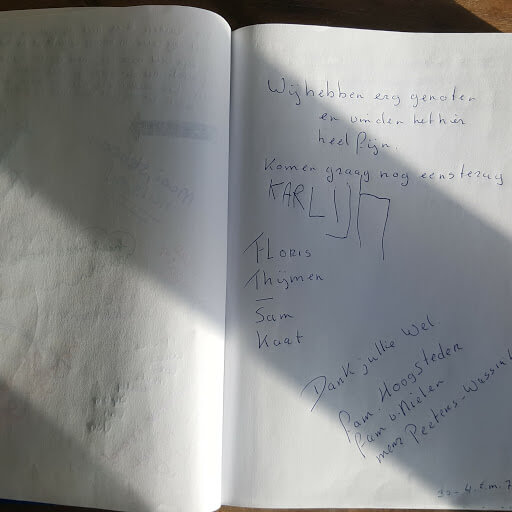 Wij hebben erg genoten
en vinden het hier
heel fijn.
Komen graag nog eens terug
KARLIJn
FLORIS
Thijmen
Sam
Kaat
Dank jullie wel.
fam. Hoogsteden
fam v. Nielen
mevr Peetens-Wassink